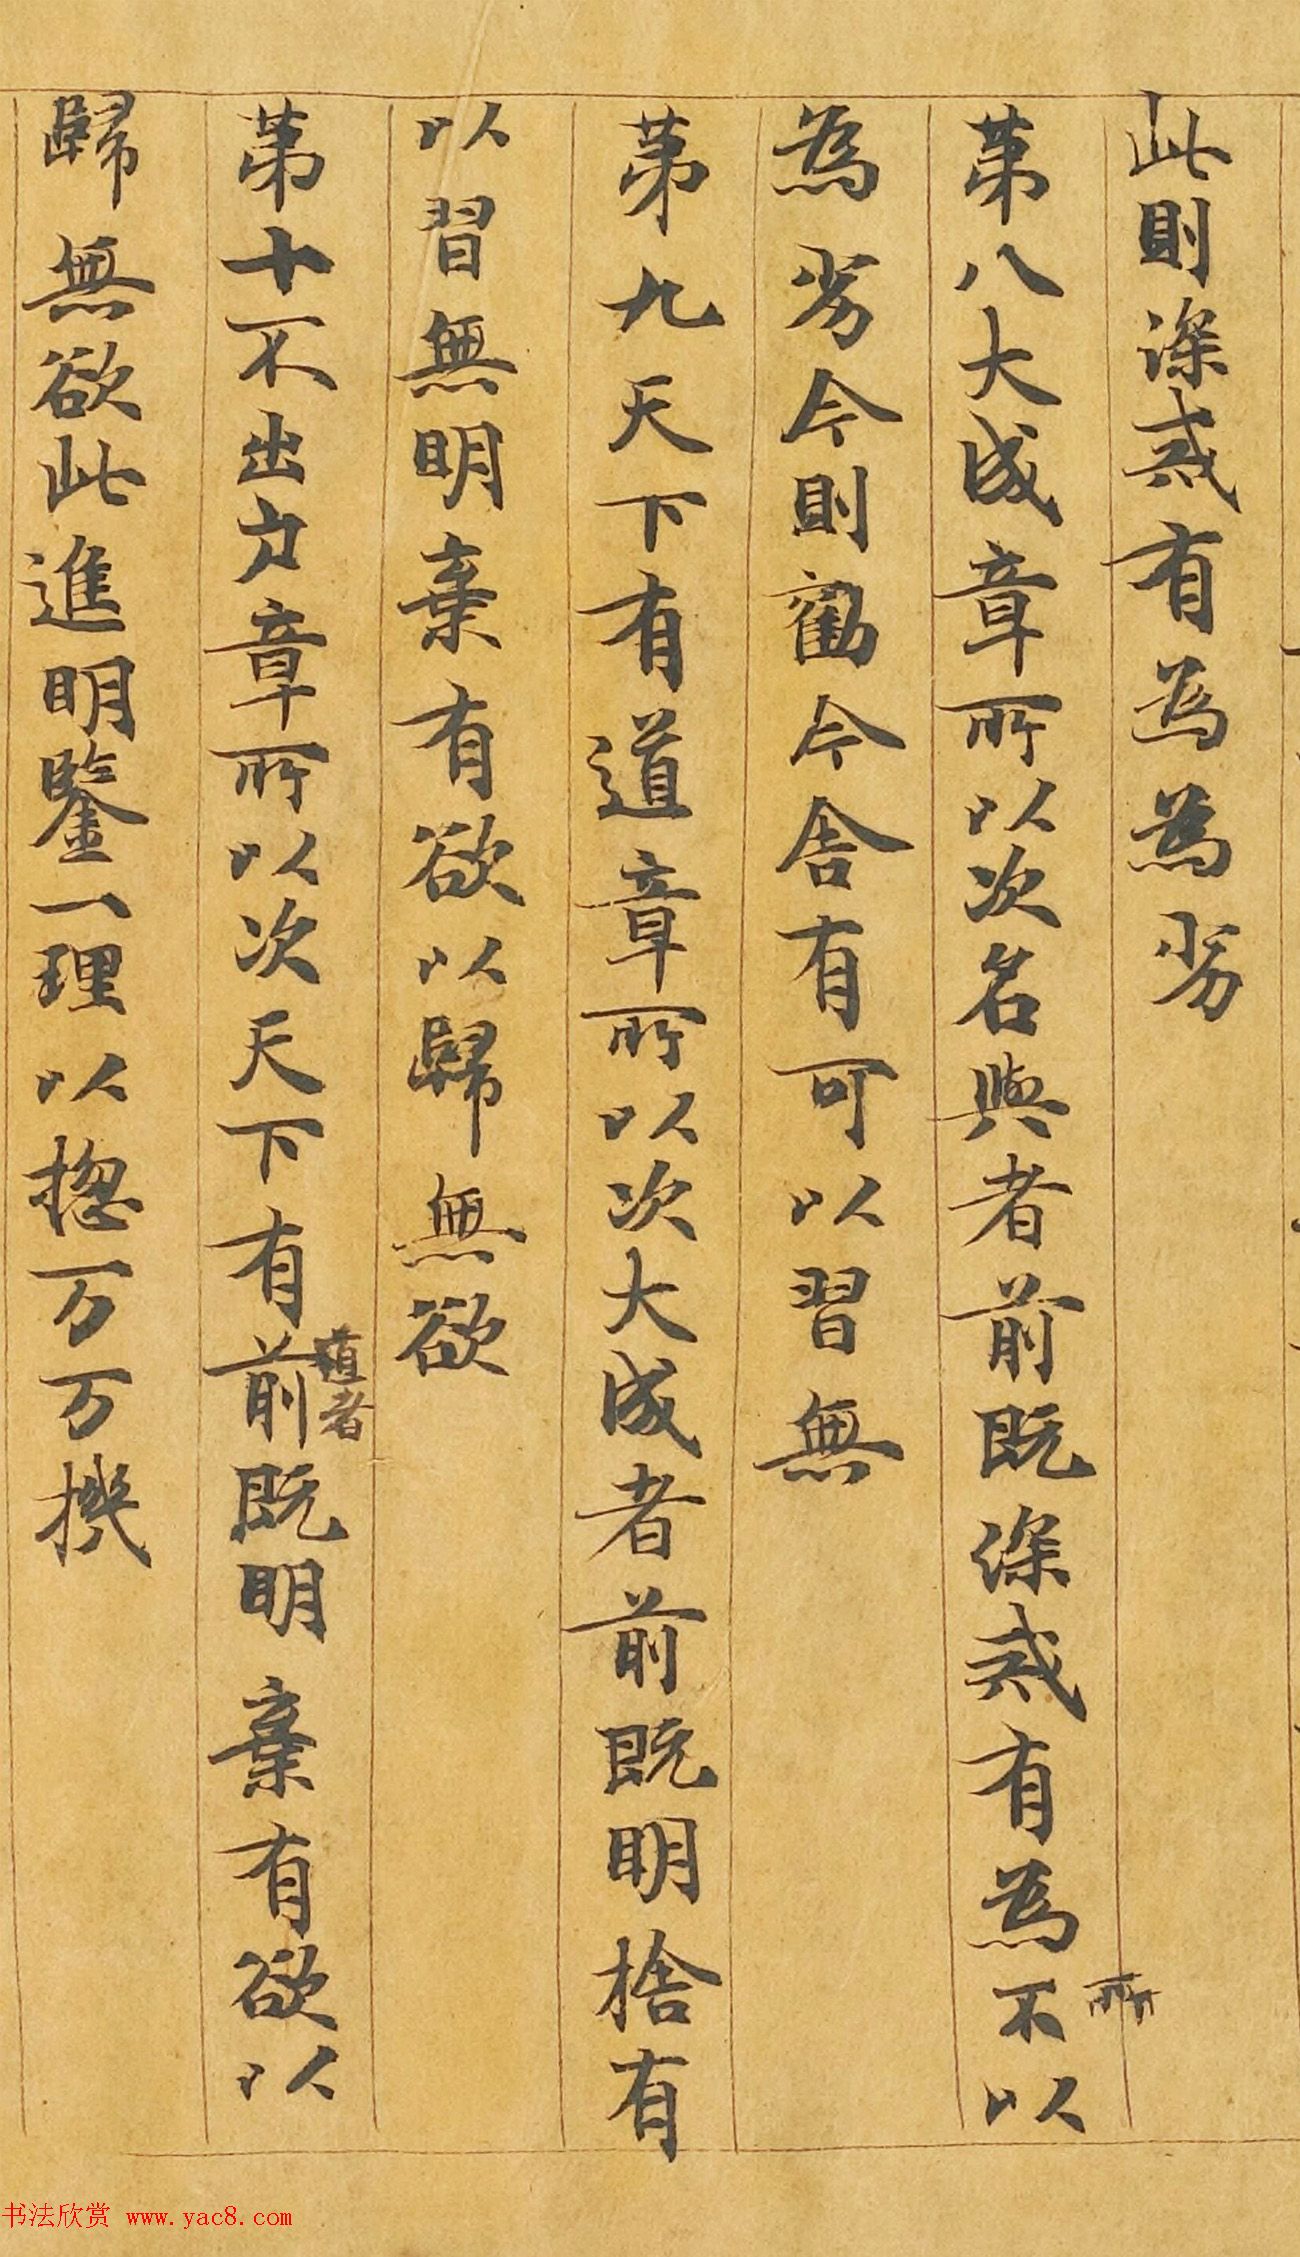 此則深戒有為為劣
第八大成章所以次名與者前既深戒有為不所以
為劣今則勸今舍有可以習無
第九天下有道章所以次大成者前既明捨有
以習無明棄有欲以歸無欲
第十不出户章所以次天下有道者前既明棄有欲以
歸無欲此進明鑒一理以揔万万機
书法欣赏 www.yac8.com